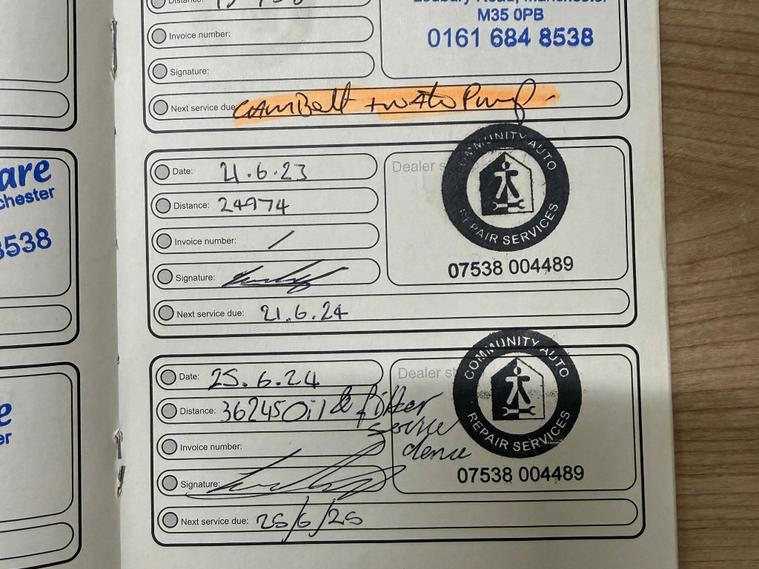 Invoice number:
Signature:
Next service due: CAMBelt + WAto Pump.
Manchester
M35 0PB
0161 684 8538
are
chester
8538
Date: 21.6.23
Distance: 24974
Invoice number: /
Signature:
Next service due: 21.6.24
Dealer
COMMUNITY AUTO
REPAIR SERVICES
07538 004489
Date: 25.6.24
Distance: 36245 Oil & filter
service
done
Invoice number:
Signature:
Next service due: 25/6/25
Dealer st
COMMUNITY AUTO
REPAIR SERVICES
07538 004489